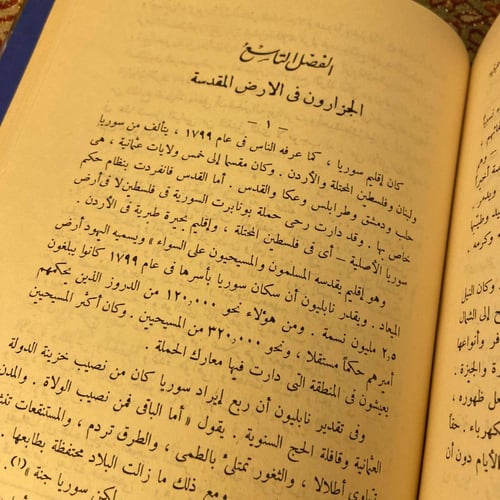 الفصل التاسع
الجزارون في الارض المقدسة
– ١ –
كان إقليم سوريا ، كما عرفه الناس في عام ١٧٩٩ ، يتألف من سوريا
ولبنان وفلسطين المحتلة والأردن . وكان مقسما إلى خمس ولايات عثمانية ، هي
حلب ودمشق وطرابلس وعكا والقدس . أما القدس فانفردت بنظام حكم
خاص بها . وقد دارت رحى حملة بونابرت السورية في فلسطين لا في أرض
سوريا الأصلية – أي في فلسطين المحتلة ، وإقليم بحيرة طبرية في الأردن .
وهو إقليم يقدسه المسلمون والمسيحيون على السواء » ويسميه اليهود أرض
الميعاد . ويقدر نابليون أن سكان سوريا بأسرها في عام ١٧٩٩ كانوا يبلغون
٢,٥ مليون نسمة . ومن هؤلاء نحو ١٢٠,٠٠٠ من الدروز الذين يحكمهم
أميرهم حكماً مستقلا ، ونحو ٣٢٠,٠٠٠ من المسيحيين . وكان أكثر المسيحيين
يعيشون في المنطقة التي دارت فيها معارك الحملة .
وفى تقدير نابليون أن ربع إيراد سوريا كان من نصيب خزينة الدولة
العثمانية وقافلة الحج السنوية . يقول « أما الباقى فمن نصيب الولاة . والمدن
أطلالا ، والثغور تمتلئ بالطمى ، والطرق تردم ، والمستنقعات
ومع ذلك ما زالت البلاد محتفظة بطابعها .
لكن سوريا جنة » (١)